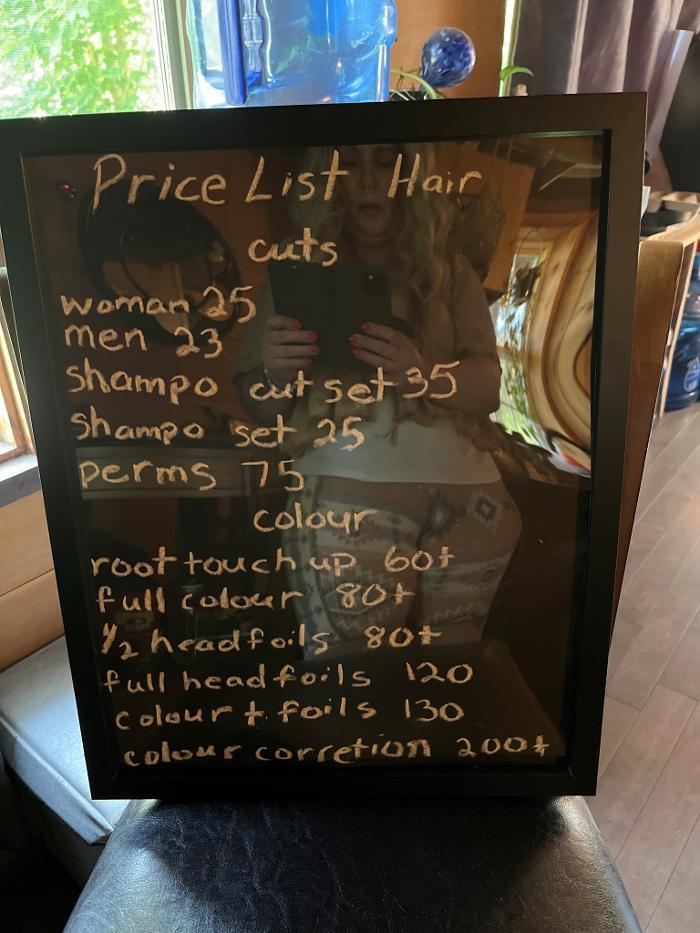 Price List Hair
cuts
woman 25
men 23
shampo cut set 35
shampo set 25
perms 75
colour
root touch up 60+
full colour 80+
1/2 head foils 80+
full head foils 120
colour + foils 130
colour corretion 200+